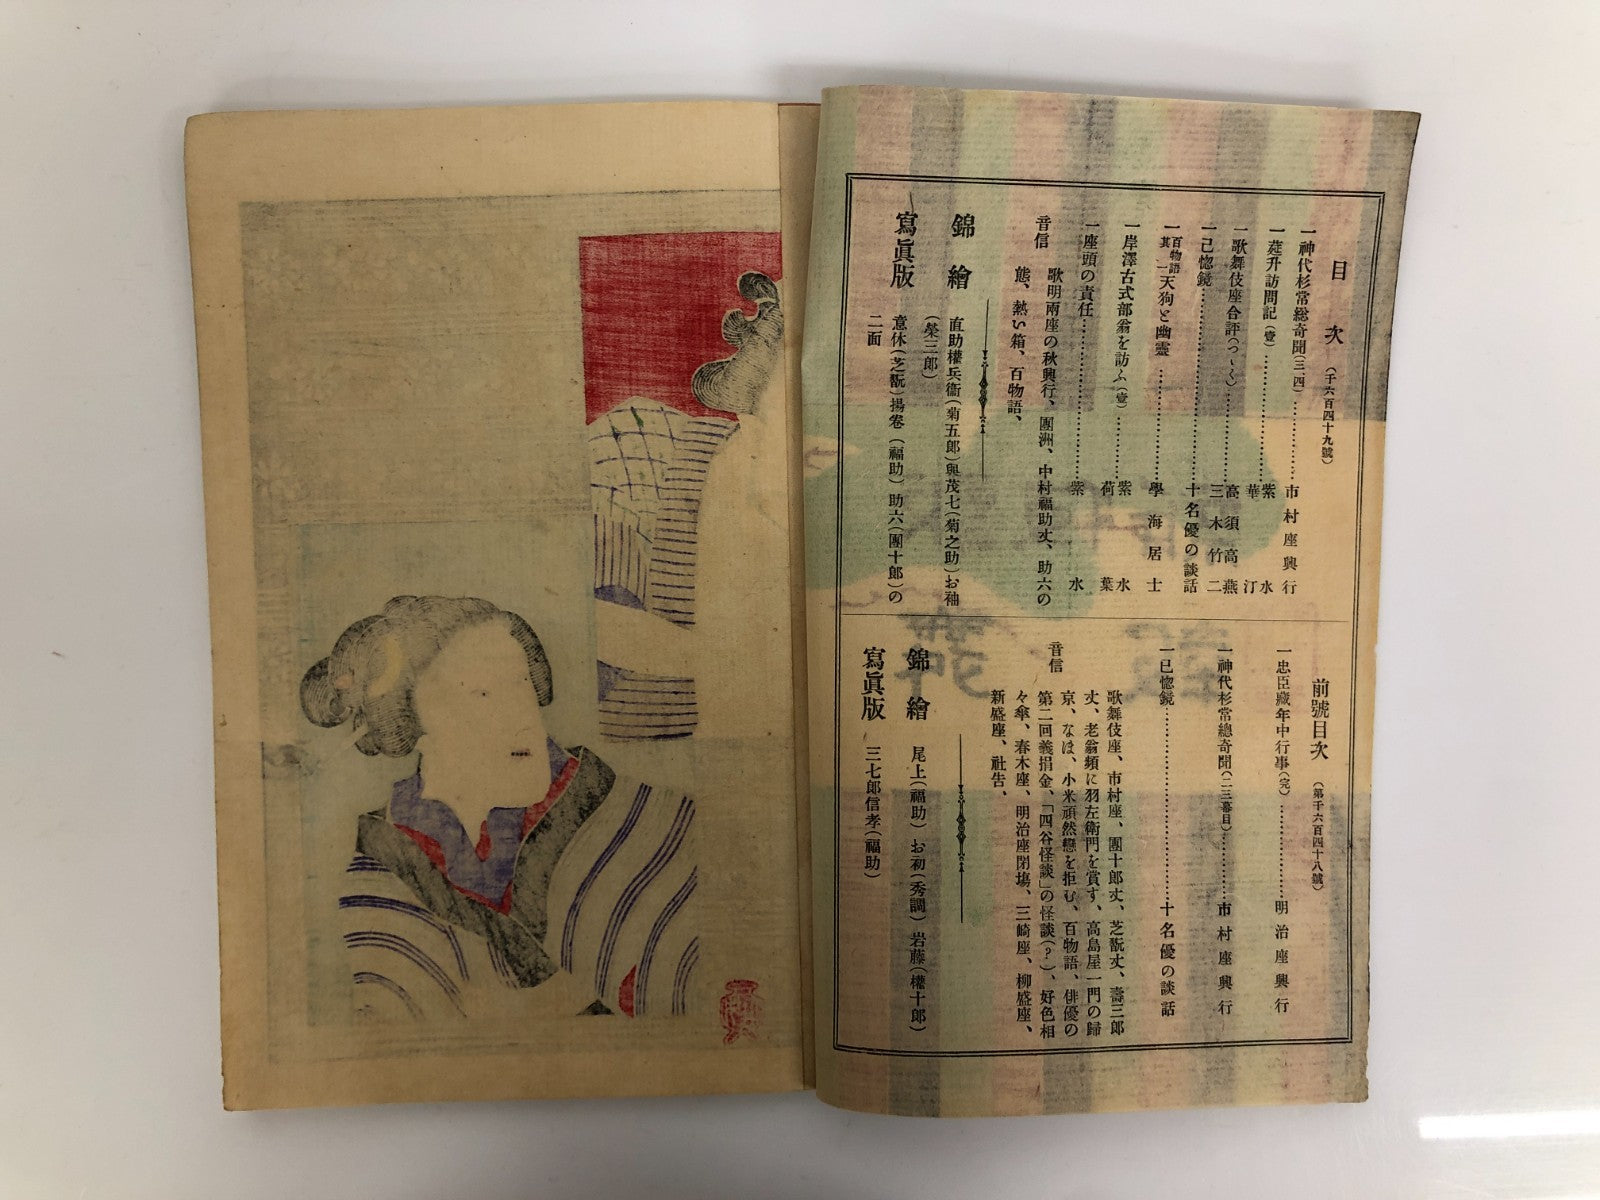 目次（千六百四十九號）
一神代杉常總奇聞（三、四）…………市村座興行
一莚升訪問記（壹）…………紫水 華汀
一歌舞伎座合評（つゞく）…………高須高燕 三木竹二
一己惚鏡…………十名優の談話
一百物語其一天狗と幽靈…………學海居士
一岸澤古式部翁を訪ふ（壹）…………紫水 荷葉
一座頭の責任…………紫水
音信　歌明兩座の秋興行、團洲、中村福助丈、助六の
態、熱い箱、百物語、
錦繪　直助權兵衞（菊五郎）與茂七（菊之助）お袖
（榮三郎）
寫眞版　意休（芝翫）揚卷（福助）助六（團十郎）の
二面
前號目次（第千六百四十八號）
一忠臣藏年中行事（完）…………明治座興行
一神代杉常總奇聞（二三幕目）…………市村座興行
一已惚鏡…………十名優の談話
音信　歌舞伎座、市村座、團十郎丈、芝翫丈、壽三郎
丈、老翁頻に羽左衛門を賞す、高島屋一門の歸
京、なほ、小米頑然戀を拒む、百物語、俳優の
第二回義捐金、「四谷怪談」の怪談（？）、好色相
々傘、春木座、明治座閉塲、三崎座、柳盛座、
新盛座、社告、
錦繪　尾上（福助）お初（秀調）岩藤（權十郎）
寫眞版　三七郎信孝（福助）